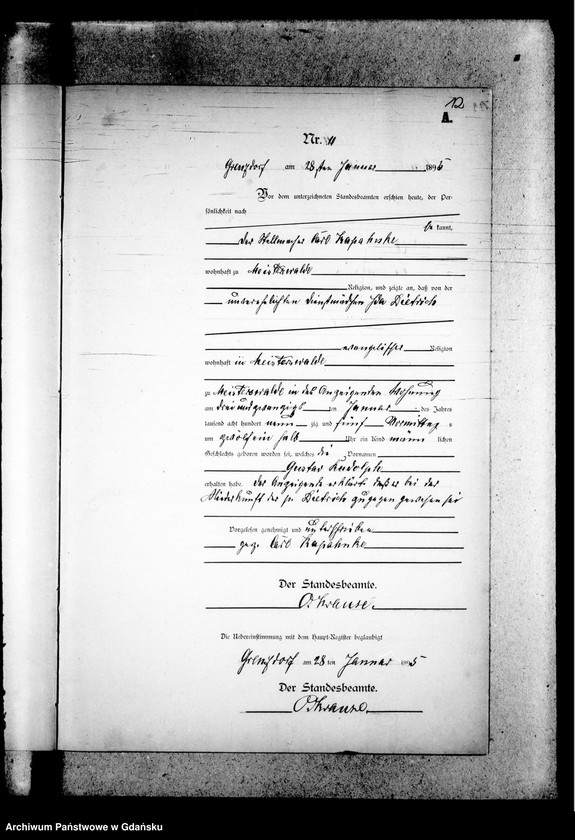 12
A.
Nr. 11
Grenzdorf am 28 ten Januar 1895
Vor dem unterzeichneten Standesbeamten erschien heute, der Per-
sönlichkeit nach
be kannt,
der Stellmacher Carl Kapahnke
wohnhaft zu Meisterswalde
Religion, und zeigte an, daß von der
unverehelichten Dienstmädchen Ida Dietrich
evangelischer Religion
wohnhaft in Meisterswalde
zu Meisterswalde in des Anzeigenden Wohnung
am drei und zwanzigs ten Januar des Jahres
tausend acht hundert neun zig und fünf Vormittag s
um zwölf ein halb Uhr ein Kind männ lichen
Geschlechts geboren worden sei, welches die Vornamen
Gustav Rudolph
erhalten habe. Der Anzeigende erklärt daß er bei der
Niederkunft der p. Dietrich zugegen gewesen sei
Vorgelesen, genehmigt und unterschrieben
gez. Carl Kapahnke
Der Standesbeamte.
O. Krause.
Die Uebereinstimmung mit dem Haupt-Register beglaubigt
Grenzdorf am 28 ten Januar 1895
Der Standesbeamte.
O. Krause.
Archiwum Państwowe w Gdańsku